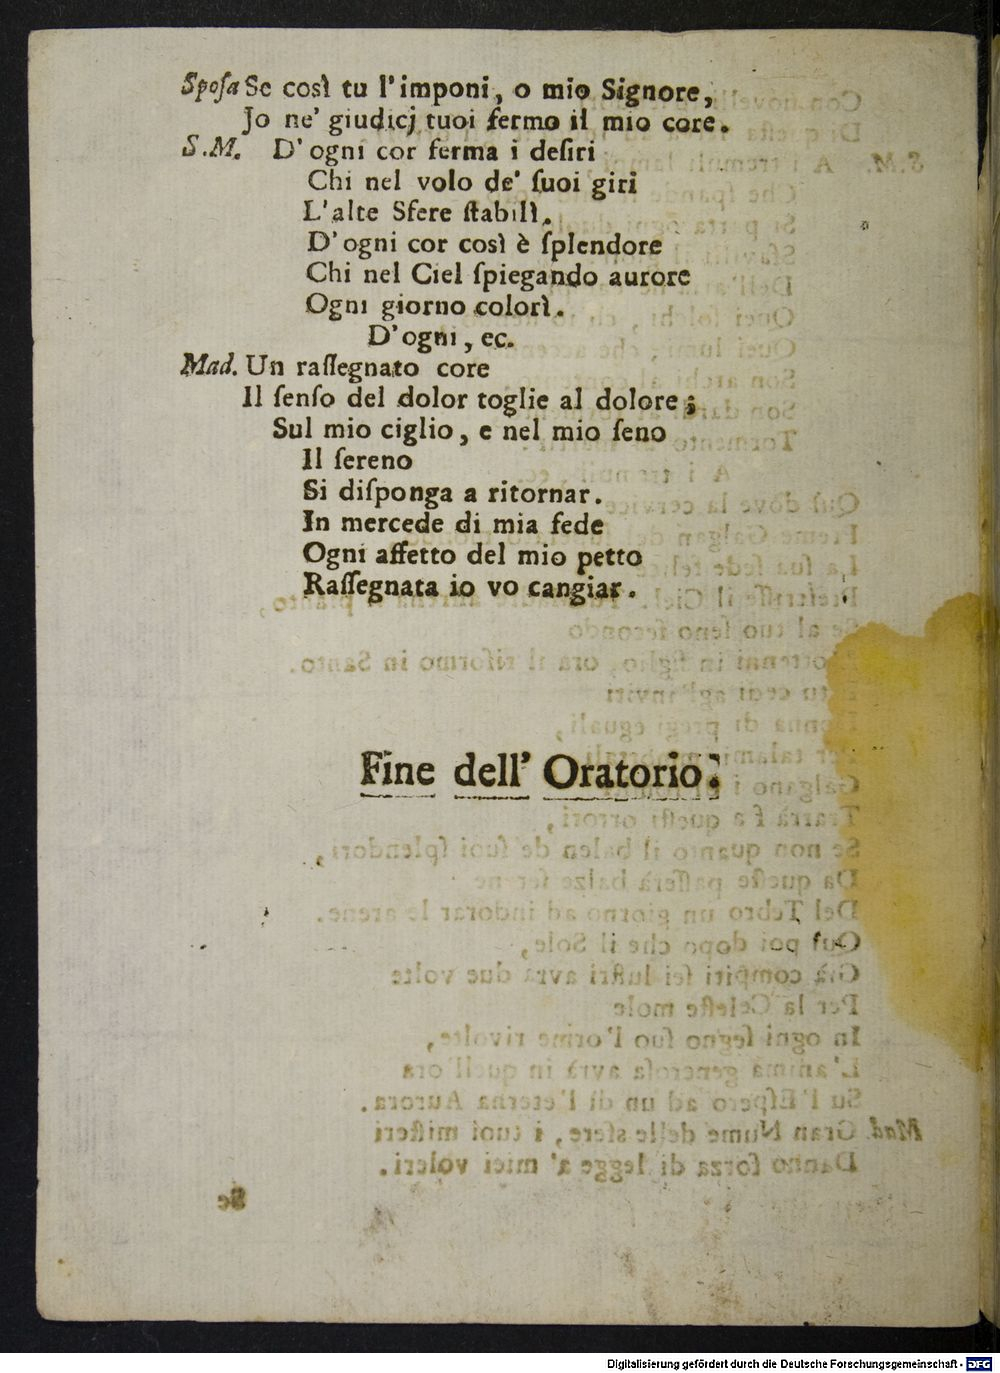 Spoſa Se così tu l'imponi, o mio Signore,
Jo ne' giudicj tuoi fermo il mio core.
S.M. D'ogni cor ferma i deſiri
Chi nel volo de' ſuoi giri
L'alte Sfere ſtabilì.
D'ogni cor così è ſplendore
Chi nel Ciel ſpiegando aurore
Ogni giorno colorì.
D'ogni, ec.
Mad. Un raſſegnato core
Il ſenſo del dolor toglie al dolore;
Sul mio ciglio, e nel mio ſeno
Il ſereno
Si diſponga a ritornar.
In mercede di mia fede
Ogni affetto del mio petto
Raſſegnata io vo cangiar.
Fine dell' Oratorio.
Digitalisierung gefördert durch die Deutsche Forschungsgemeinschaft - DFG